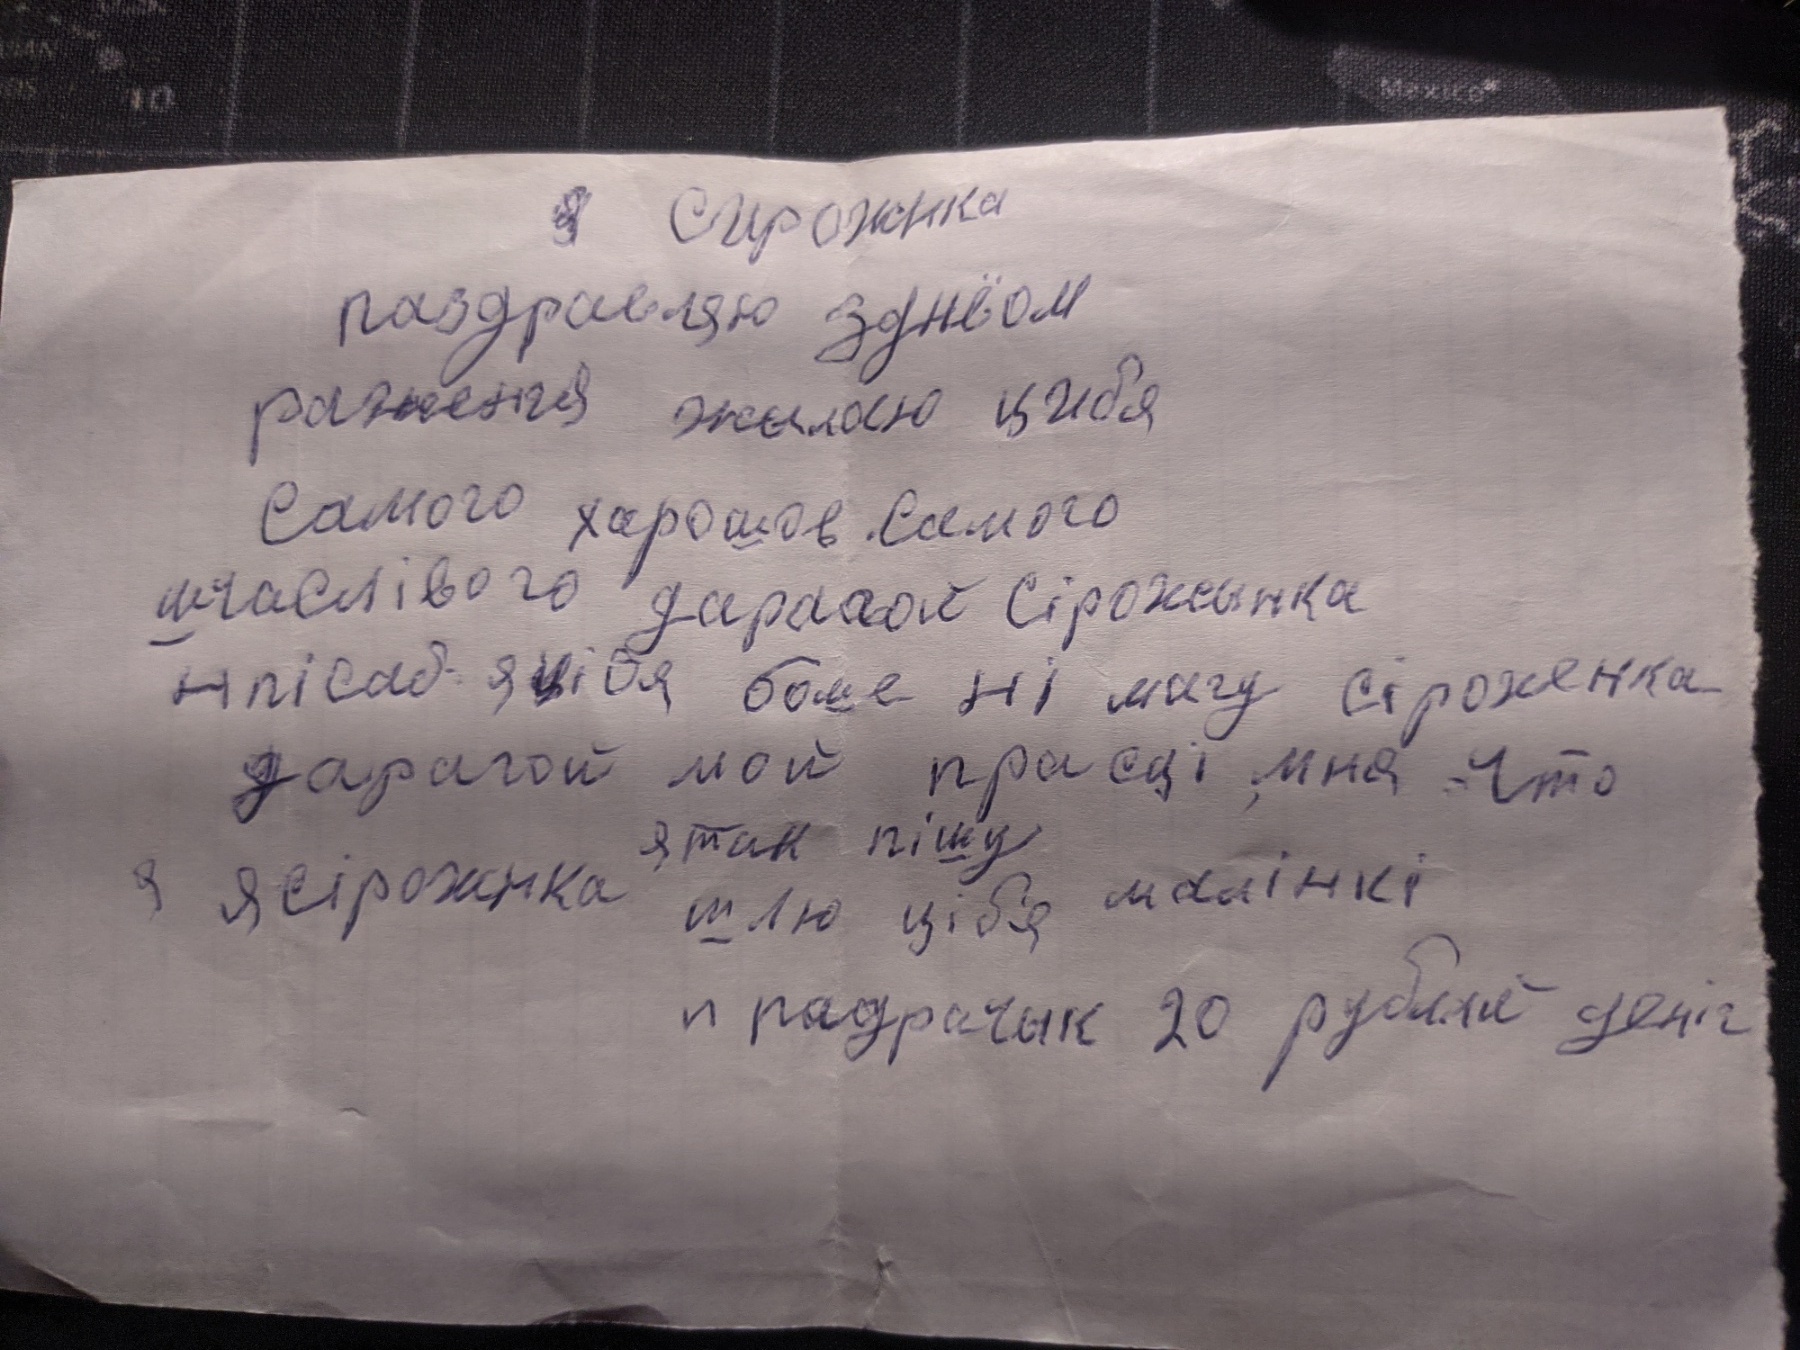 Mexico*
10
я Сирожнка
паздравляю зднёом
раженія жылаю цибя
Самого харошов Самого
шчаслівого дарагой Сірожынка
нпісаб я цібя боше ні магу Сіроженка
дарагой мой прасці мня Что
я так пішу
я я Сірожнка
шлю цібя малінкі
п падрачык 20 рублей деніг